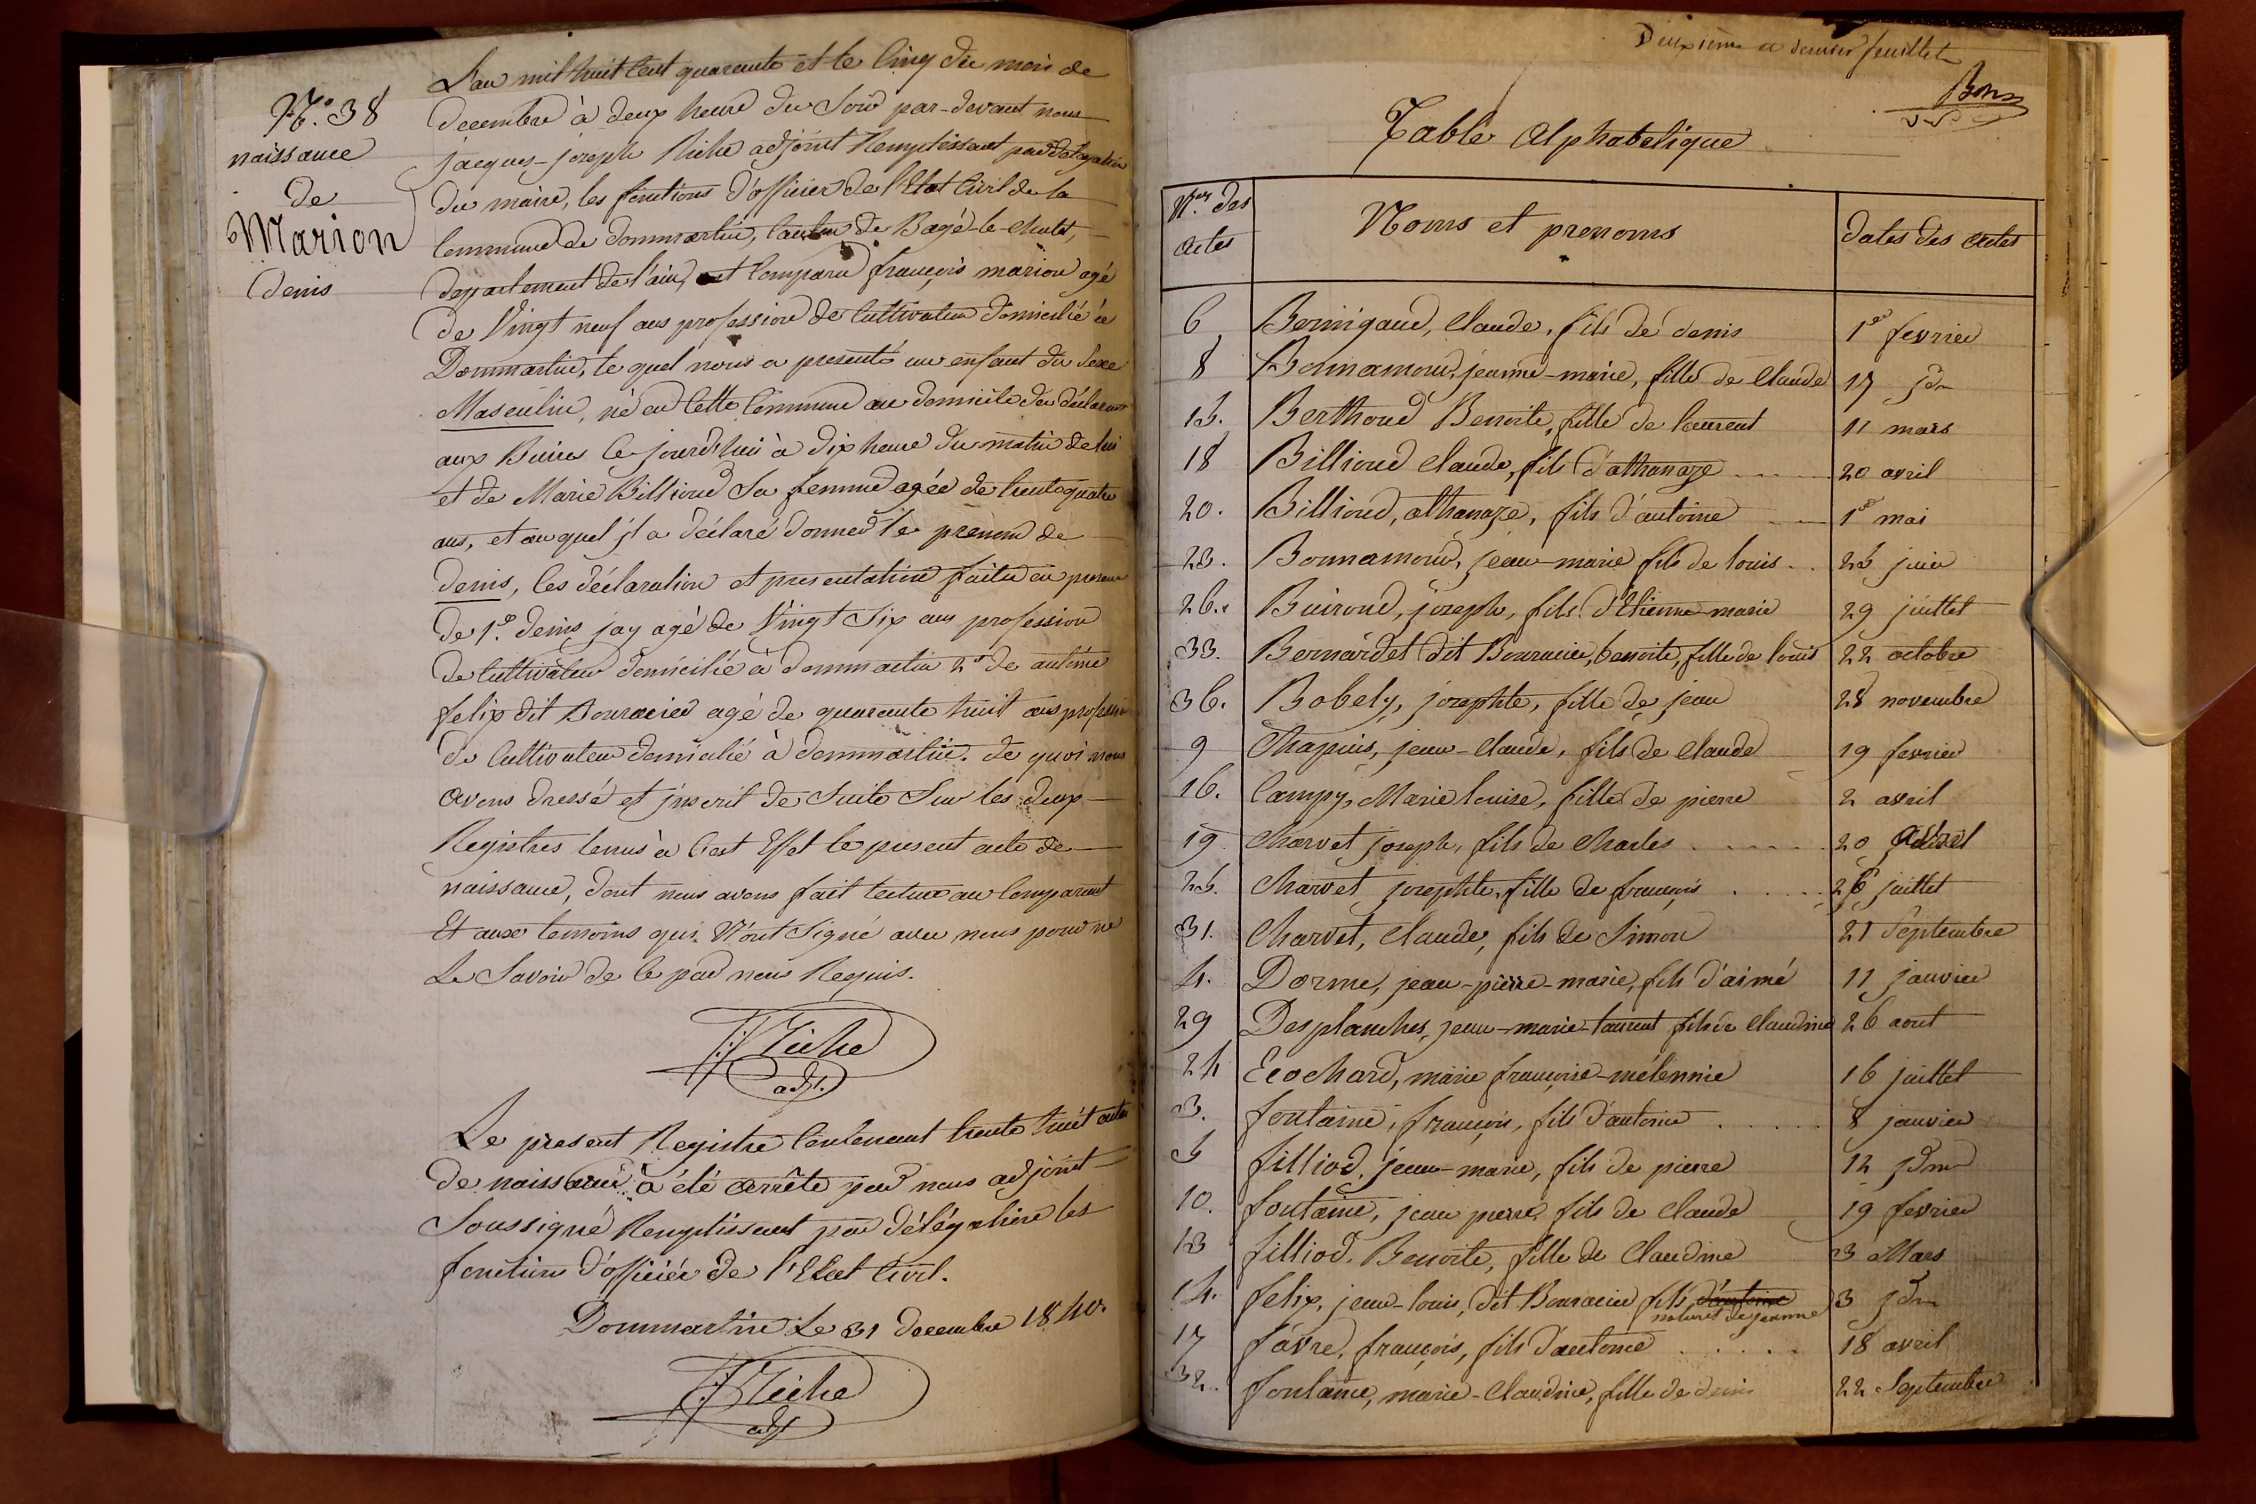 N.º 38
naissance
de
Marion
denis
L'an mil huit cent quarante et le cinq du mois de
decembre à deux heure du soir par-devant nous
jacques-joseph Riche adjoint Remplissant par délégation
du maire, les fonctions d'officier de l'Etat civil de la
commune de dommartin, canton de Bagé-le-chatel,
departement de l'ain, est comparu françois marion agé
de vingt neuf ans profession de cultivateur domicilié à
Dommartin, le quel nous a presenté un enfant du sexe
Masculin, né en cette commune au domicile du déclarant
aux Buires ce jourd'hui à dix heure du matin de lui
et de Marie Billioud sa femme agée de trente quatre
ans, et au quel jl a déclaré donner le prenom de
denis, les déclaration et presentation faites en presence
de 1.º denis jay agé de vingt six ans profession
de cultivateur domicilié à dommartin 2º de antoine
felix dit Bouracier agé de quarante huit ans profession
de cultivateur domicilié à dommartin. de quoi nous
avons dressé et jnscrit de suite sur les deux
Registres tenus à cest Effet le present acte de
naissance, dont nous avons fait lecture au comparant
Et aux temoins qui N'ont signé avec nous pour ne
Le savoir de ce par nous Requis.
Riche
adjt.
Le present Registre contenant trente huit actes
de naissance à été arrêté par nous adjoint
soussigné Remplissant par délégation les
fonction d'officier de l'Etat civil.
Dommartin Le 31 decembre 1840.
Riche
adjt
Deuxième et dernier feuillet
Bon
Table Alphabetique
N.os des actes Noms et prenoms dates des actes
6 Bernigaud, Claude, fils de denis 1er fevrier
8 Bonnamour, jeanne-marie, fille de Claude 17 jdm
15. Berthoud Benoite, fille de laurent 11 mars
18 Billioud Claude, fils d'athanaze 20 avril
20. Billioud, athanaze, fils d'antoine 1er mai
23. Bonnamour, jean-marie fils de louis 25 juin
26. Buiroud, joseph, fils d'Etienne-marie 29 juillet
33. Bernardet dit Bouracier, benoite, fille de louis 22 octobre
36. Bobely, josephte, fille de jean 28 novembre
9 Chapuis, jean-claude, fils de Claude 19 fevrier
16. Campy, Marie louise, fille de pierre 2 avril
19. Charvet joseph, fils de Charles 20 Avril
25. Charvet josephte, fille de françois 26 juillet
31. Charvet, Claude, fils de simon 21 septembre
4. Dorme, jean-pierre-marie, fils d'aimé 11 janvier
29 Desplanches, jean-marie-laurent fils de Claudine 26 aout
24 Ecochard, marie françoise-mélennie 16 juillet
3. fontaine, françois, fils d'antoine 8 janvier
5 filliod, jean-marie, fils de pierre 12 jdm
10. fontaine, jean pierre, fils de Claude 19 fevrier
13 filliod. Benoite, fille de Claudine 3 Mars
14. felix, jean-louis, dit Bouracier fils d'antoine 3 jdm
naturel de jeanne
17 favre, françois, fils d'antoine 18 avril
32. fontaine, marie-Claudine, fille de denis 22 septembre